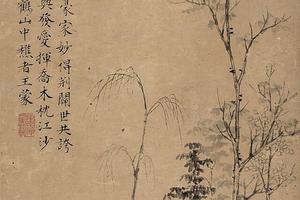 豪家妙得荊關世共誇
興發愛揮喬木枕江沙
鶴山中樵者王蒙